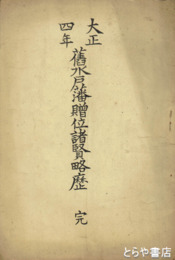 大正
四年
舊水戶藩贈位諸賢略歴 完
とらや書店